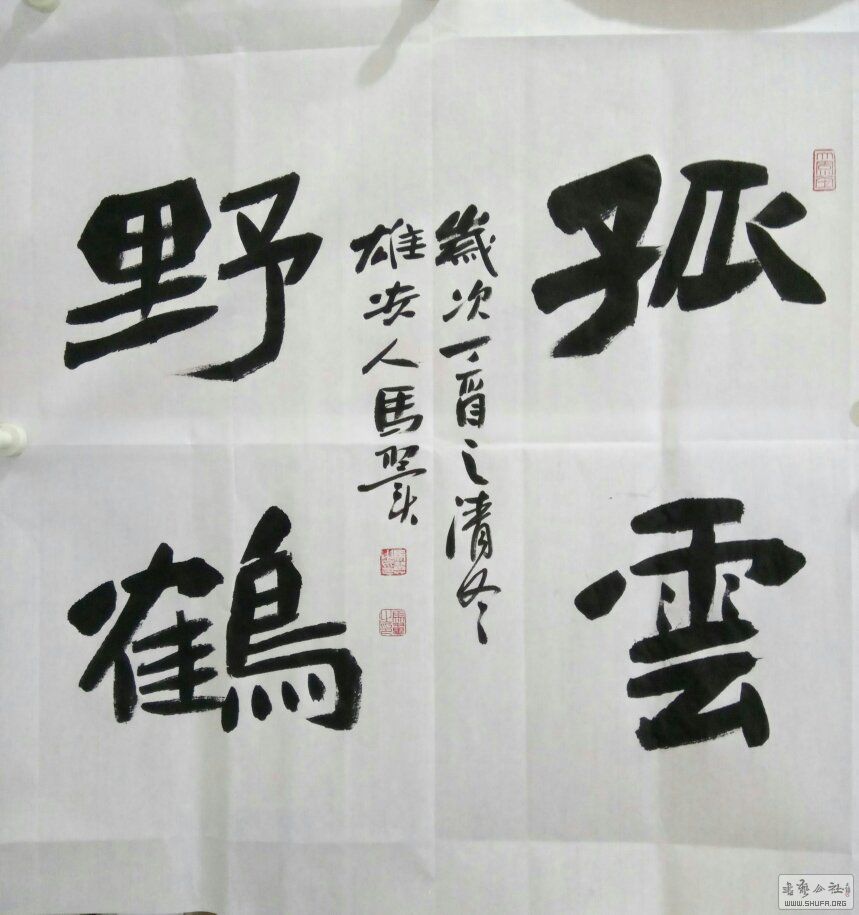 孤雲
野鶴
歲次丁酋之清冬
雄安人馬
書藝公社
WWW.SHUFA.ORG